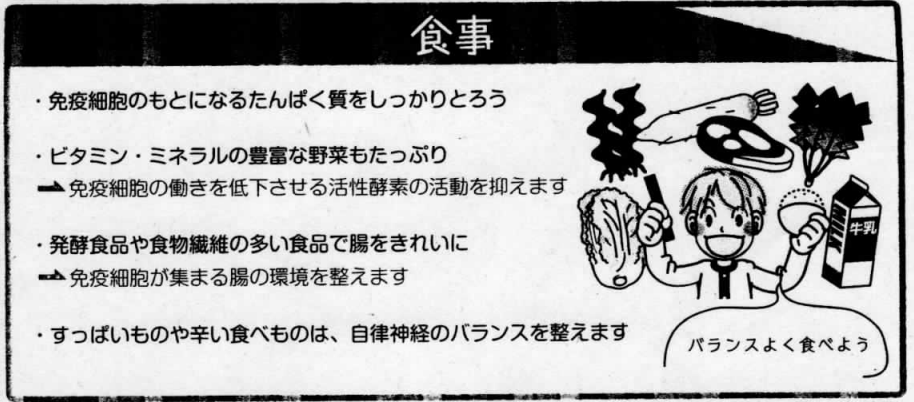 食事
・免疫細胞のもとになるたんぱく質をしっかりとろう
・ビタミン・ミネラルの豊富な野菜もたっぷり
→免疫細胞の働きを低下させる活性酵素の活動を抑えます
・発酵食品や食物繊維の多い食品で腸をきれいに
→免疫細胞が集まる腸の環境を整えます
・すっぱいものや辛い食べものは、自律神経のバランスを整えます
MILK
牛乳
バランスよく食べよう